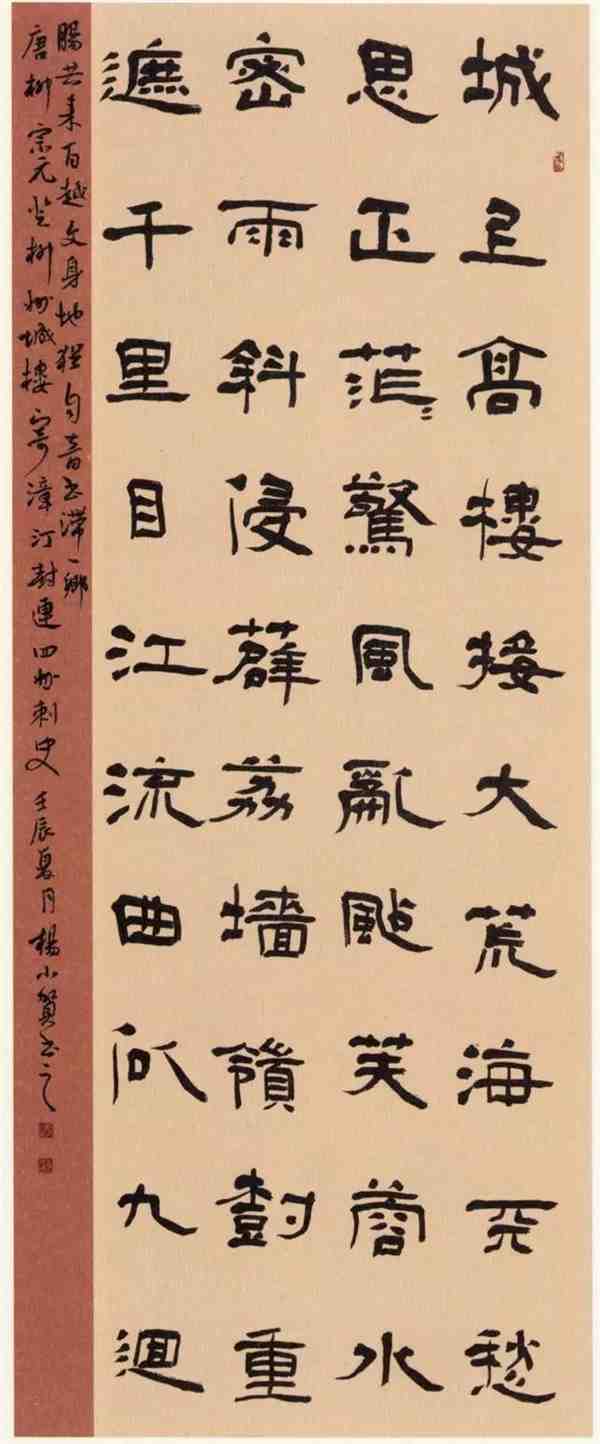 城上高樓接大荒海天愁
思正茫〻驚風亂颭芙蓉水
密雨斜侵薜荔墻嶺樹重
遮千里目江流曲似九迴
腸共来百越文身地猶自音书滞一鄉
唐柳宗元登柳州城樓寄漳汀封連四州刺史 壬辰夏月楊小賢书之